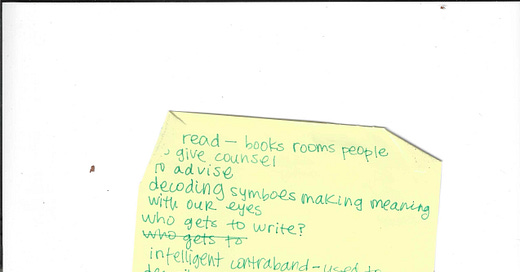 read — books rooms people
give counsel
to advise
decoding symboes making meaning
with our eyes
who gets to write?
who gets to
intelligent contraband - used to